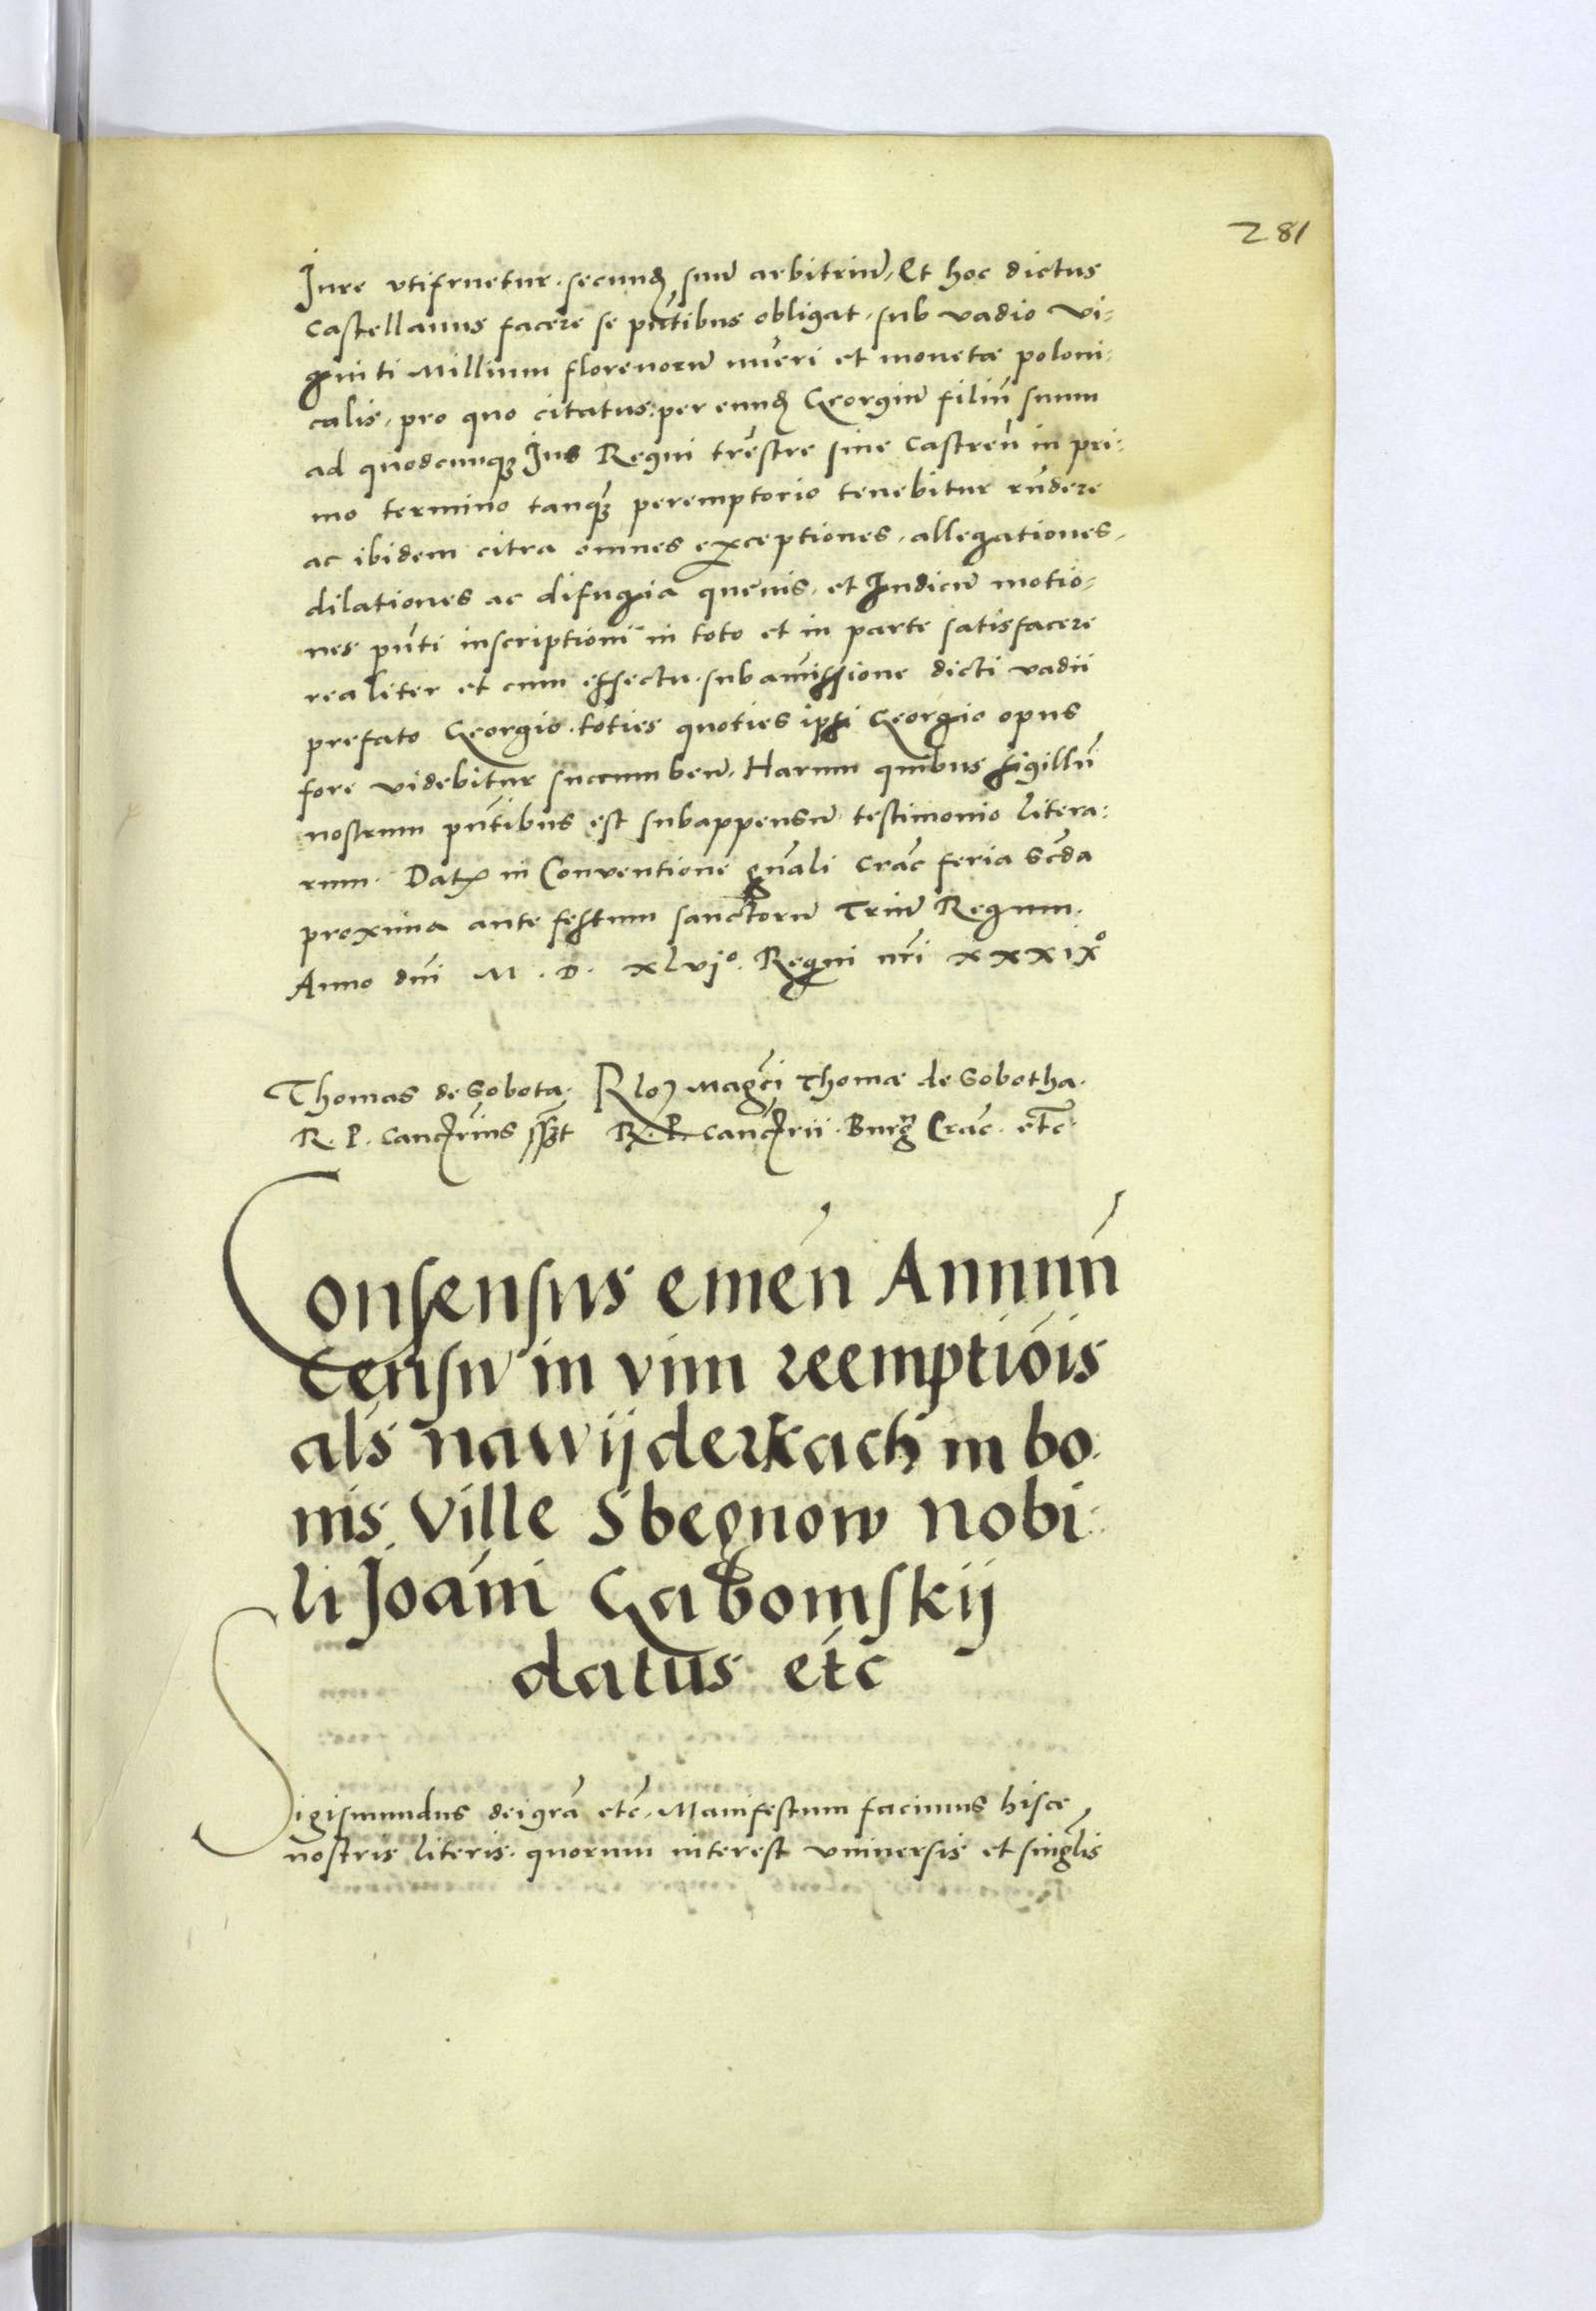 281
Jure utifruetur. secund. suu arbitriu. Et hoc dictus
Castellanus facere se pntibus obligat. sub vadio vi:
ginti Millium florenoru nueri et monetae poloni:
calis. pro quo citatus: per eund. Georgiu filiu suum
ad quodcunq Jus Regni trestre siue Castren in pri:
mo termino tanq peremptorio tenebitur rndere
ac ibidem citra omnes exceptiones. allegationes.
dilationes ac difugia queuis. et Judicu motio:
nes pnti inscriptioni in toto et in parte satisfacere
realiter et cum effectu. sub amissione dicti vadii
prefato Georgio. toties quoties ipsi Georgio opus
fore videbitur succumben. Harum quibus sigillu
nostrum pntibus est subappensu testimonio litera:
rum. Dat. in Conventione gnali Crac feria Scda
proxima ante festum sanctoru Triu Regum.
Anno dni M. D. xlvjo. Regni nri xxxixo
Thomas de Sobota. Rlo Magci Thomae de Sobotha.
R. P. Cancrius sszt R. P. Cancrii. Burg Crac. etc
Consensus emen Annuu
Censu in vim reemptiois
als nawijderkach in bo:
nis Ville Sbegnow nobi:
li Joani Gabomskij
datus etc
Sigismundus dei gra etc. Manifestum facimus hisce
nostris literis. quorum interest vniuersis et singlis